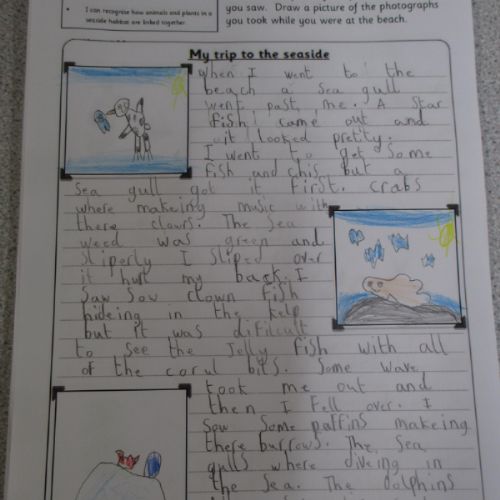 I can recognise how animals and plants in a
seaside habitat are linked together.
you saw. Draw a picture of the photographs
you took while you were at the beach.
My trip to the seaside
when I went to the
beach a sea gull
went past me. A star
fish came out and
it looked pretty.
I went to get some
fish and chis but a
sea gull got it first. crabs
where makeing music with
there claws. The sea
weed was green and
sliperly I sliped over
it hurt my back. I
saw sow clown fish
hideing in the kelp
but it was difitcult
to see the Jelly fish with all
of the corul bits. Some wave
took me out and
then I fell over. I
sow some paffins makeing
there burrows. The sea
gulls where diveing in
the sea. The dolphins